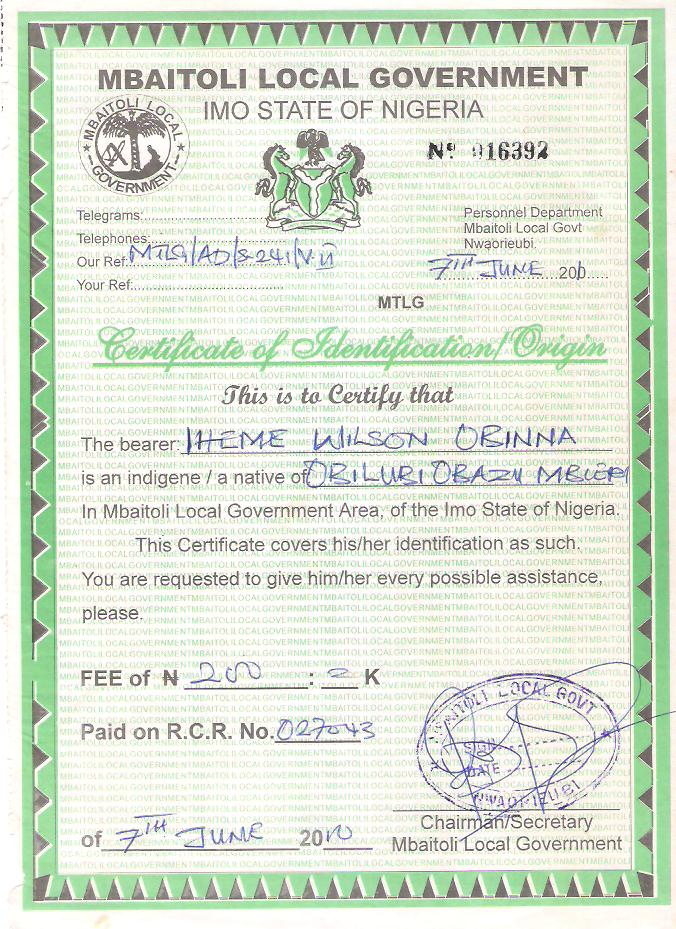 MBAITOLI LOCAL GOVERNMENT
IMO STATE OF NIGERIA
MBAITOLI LOCAL GOVERNMENT
Nº 016392
Telegrams:
Telephones:
Our Ref. MTLG/AD/S.241/V.II
Your Ref.
Personnel Department
Mbaitoli Local Govt
Nwaorieubi.
7TH JUNE 2010
MTLG
Certificate of Identification/Origin
This is to Certify that
The bearer: IHEME WILSON OBINNA
is an indigene / a native of OBILUBI OBAZU MBIERI
In Mbaitoli Local Government Area, of the Imo State of Nigeria.
This Certificate covers his/her identification as such.
You are requested to give him/her every possible assistance,
please.
FEE of ₦ 200 : = K
Paid on R.C.R. No. 027043
MBAITOLI LOCAL GOVT
SIGN
DATE
of 7TH JUNE 2010
Chairman/Secretary
Mbaitoli Local Government